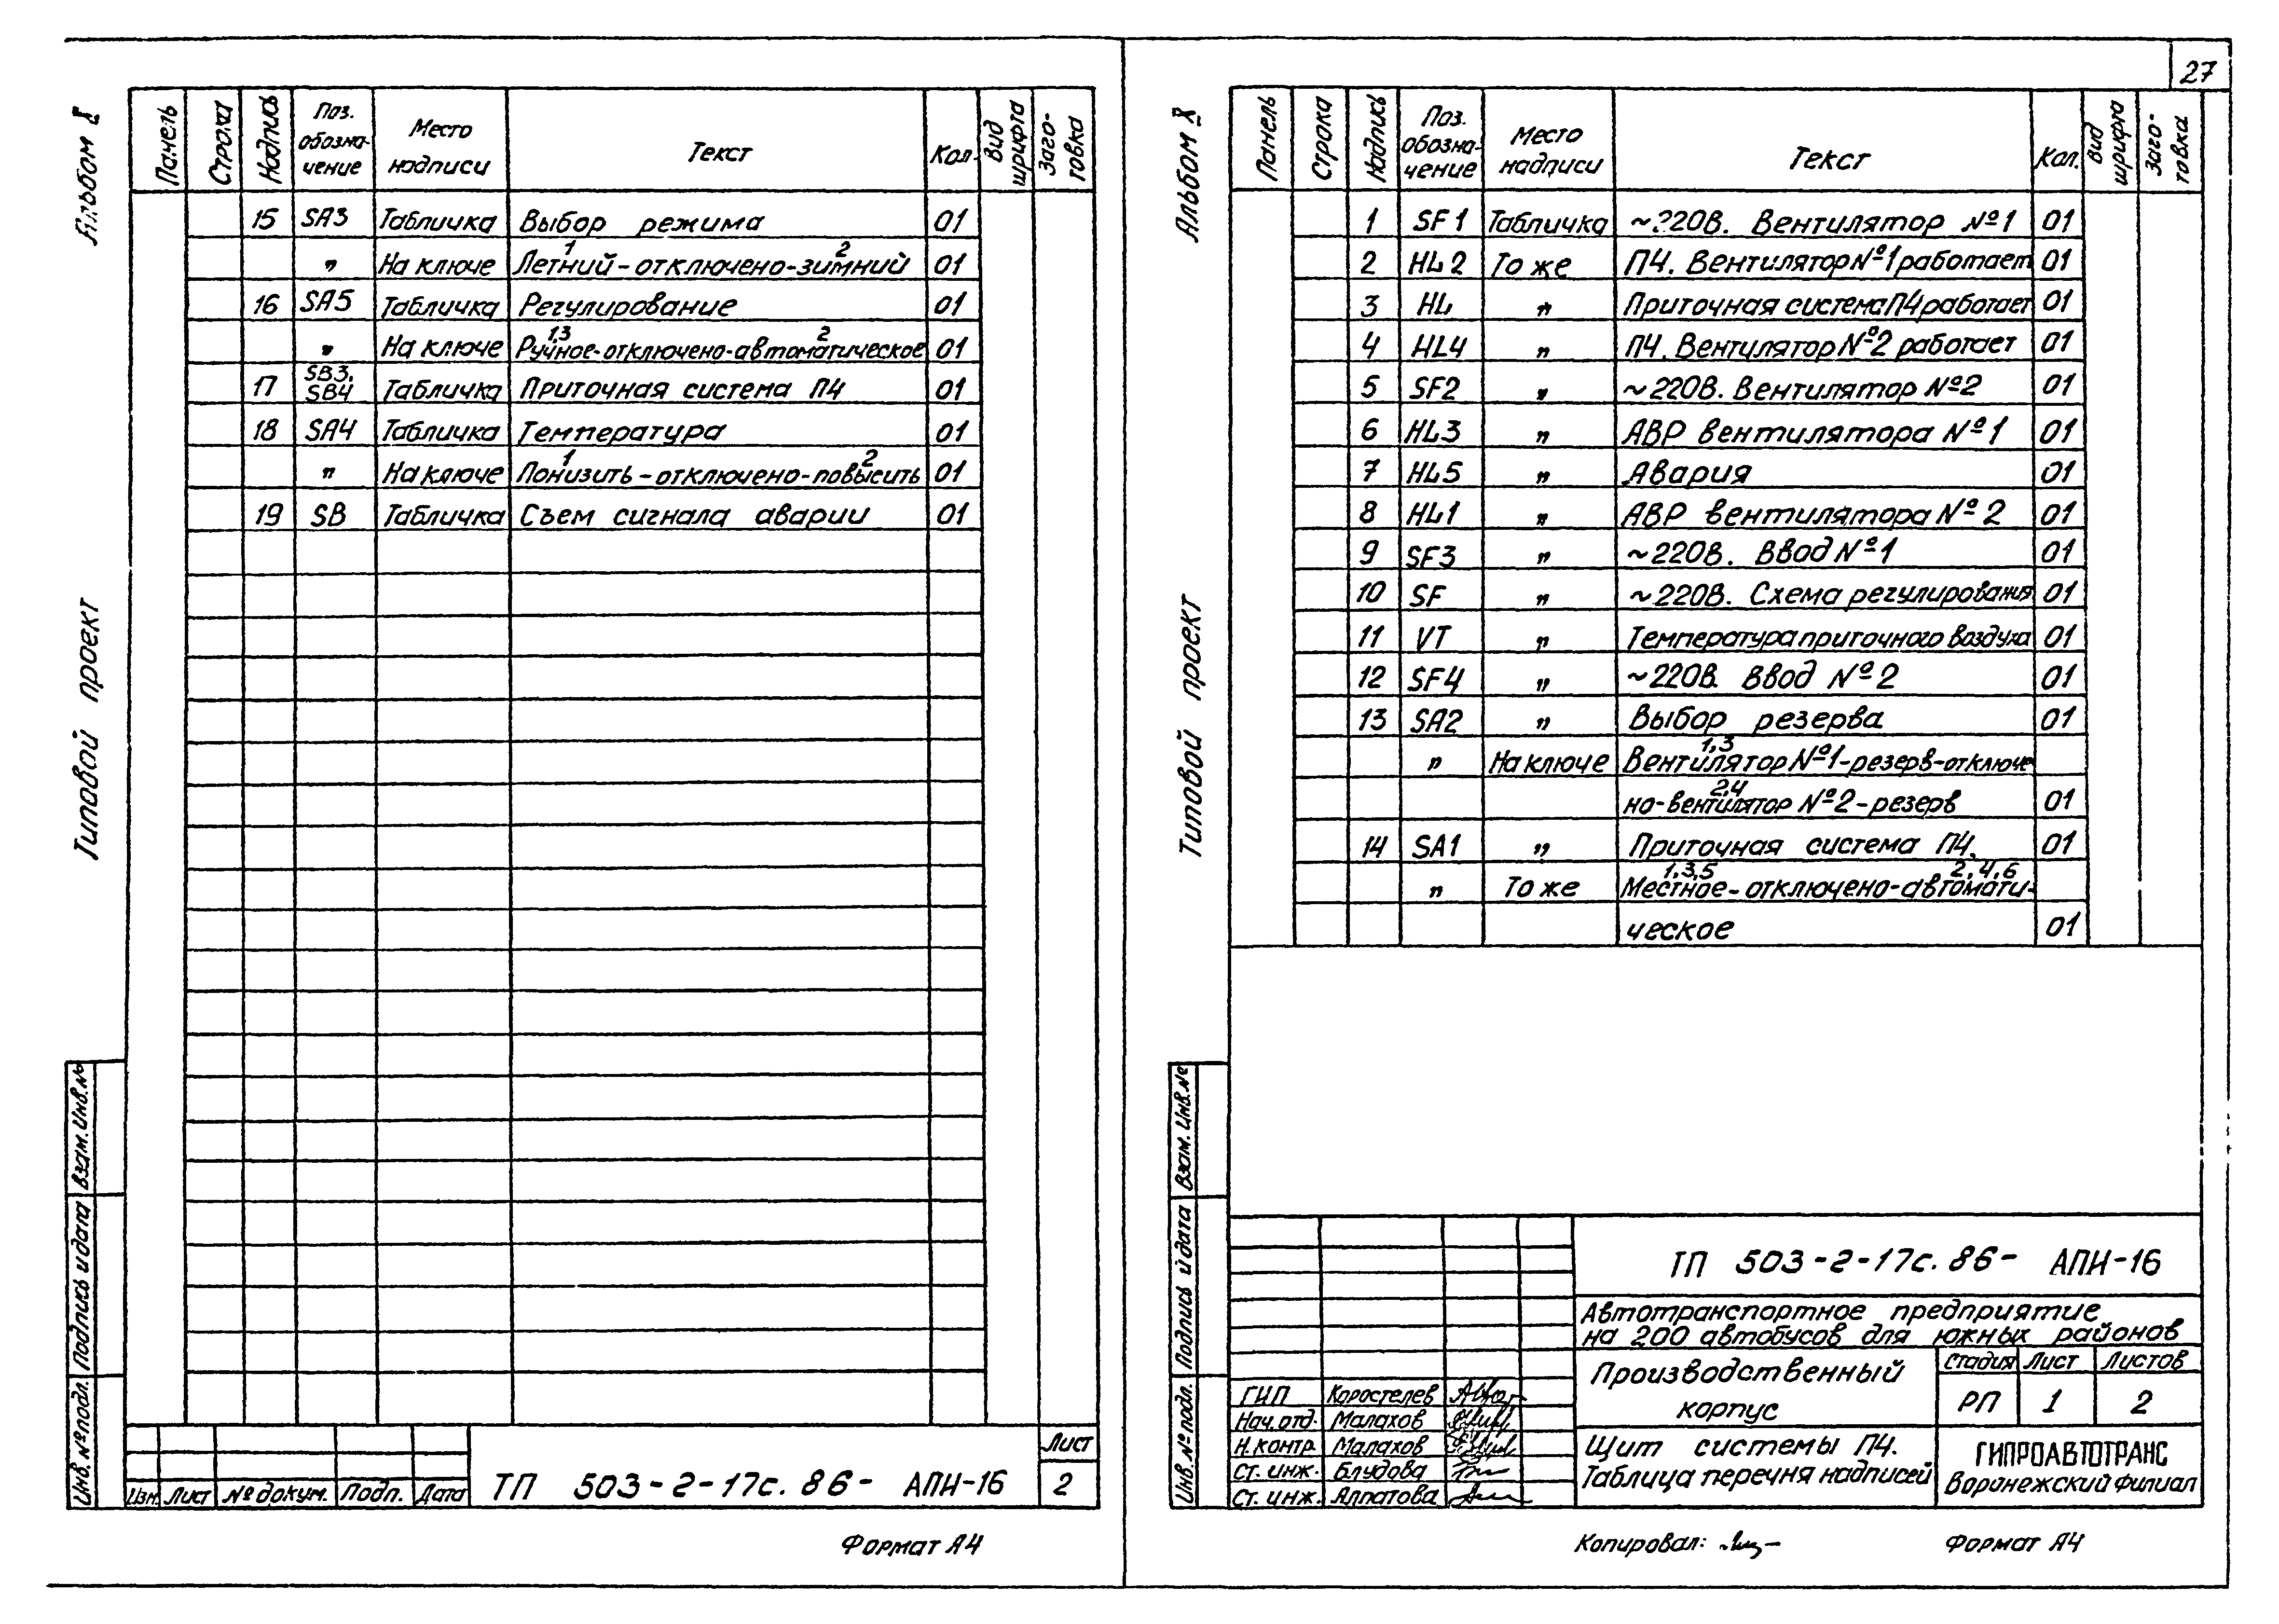 27
Альбом X
Типовой проект
Панель Строка Надпись Поз. обозна- чение Место надписи Текст Кол. Вид шрифта Заго- товка
15 SA3 Табличка Выбор режима 01
1 2
" На ключе Летний-отключено-зимний 01
16 SA5 Табличка Регулирование 01
1,3 2
" На ключе Ручное-отключено-автоматическое 01
17 SB3, SB4 Табличка Приточная система П4 01
18 SA4 Табличка Температура 01
1 2
" На ключе Понизить-отключено-повысить 01
19 SB Табличка Съем сигнала аварии 01
Взам. инв. №
Подпись и дата
Инв. № подл.
Изм. Лист № докум. Подп. Дата
ТП 503-2-17с.86- АПН-16
Лист
2
Формат А4
Альбом X
Типовой проект
Панель Строка Надпись Поз. обозна- чение Место надписи Текст Кол. Вид шрифта Заго- товка
1 SF1 Табличка ~220В. Вентилятор №1 01
2 HL2 То же П4. Вентилятор №1 работает 01
3 HL " Приточная система П4 работает 01
4 HL4 " П4. Вентилятор №2 работает 01
5 SF2 " ~220В. Вентилятор №2 01
6 HL3 " АВР вентилятора №1 01
7 HL5 " Авария 01
8 HL1 " АВР вентилятора №2 01
9 SF3 " ~220В. Ввод №1 01
10 SF " ~220В. Схема регулирования 01
11 VT " Температура приточного воздуха 01
12 SF4 " ~220В Ввод №2 01
13 SA2 " Выбор резерва 01
1,3
" На ключе Вентилятор №1-резерв-отключе
2,4
но-вентилятор №2-резерв 01
14 SA1 " Приточная система П4. 01
1,3,5 2,4,6
" То же Местное-отключено-автомати-
ческое 01
Взам. инв. №
Подпись и дата
Инв. № подл.
ТП 503-2-17с.86- АПН-16
Автотранспортное предприятие
на 200 автобусов для южных районов
Производственный
корпус
Стадия Лист Листов
РП 1 2
ГИП Коростелев
Нач. отд. Малахов
Н. контр. Малахов
Ст. инж. Блудова
Ст. инж. Алпатова
Щит системы П4.
Таблица перечня надписей
ГИПРОАВТОТРАНС
Воронежский филиал
Копировал:
Формат А4